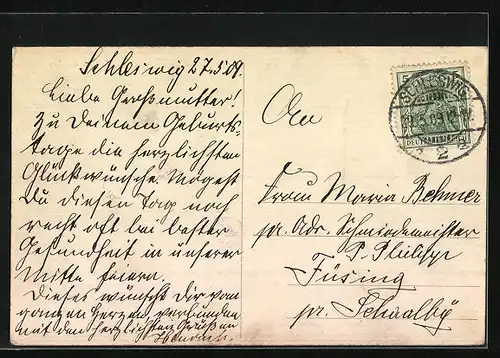 Schleswig 27.5.09.
Liebe Großmutter!
Zu Deinem Geburts-
tage die herzlichsten
Glückwünsche. Mögest
Du diesen Tag noch
recht oft bei bester
Gesundheit in unserer
Mitte feiern.
Dieses wünscht Dir von
ganzem Herzen, verbunden
mit den herzlichsten Grüßen
An
Frau Maria Behmer
pr. Adr. Schmiedemeister
P. Philipp
Füsing
pr. Schaalby
SCHLESWIG
DEUTSCHES REICH